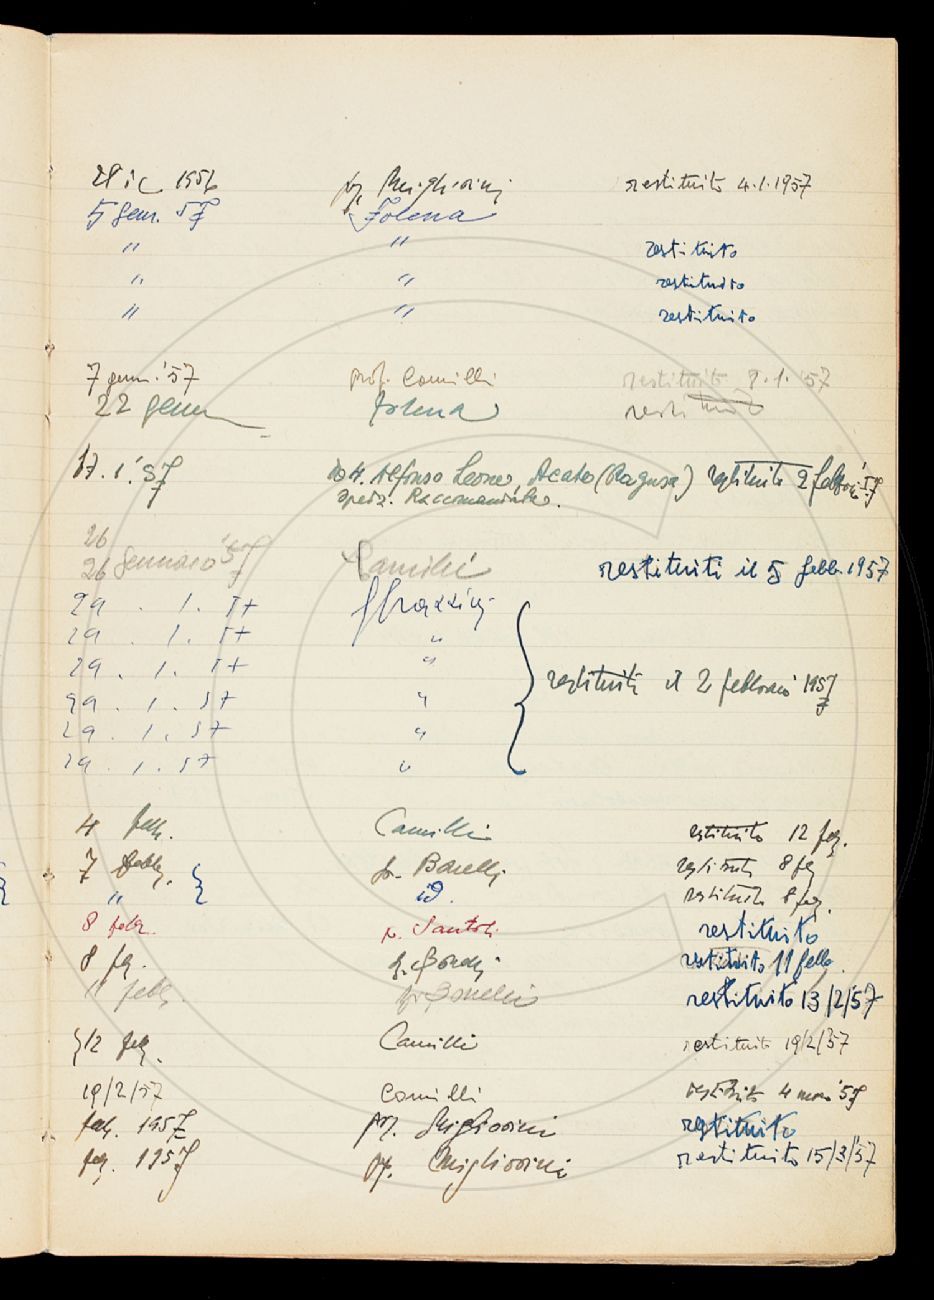 1956 restituito 4.1.1957
5 genn. 57 Folena
" "  restituito
" " restituito
" " restituito
7 genn. '57 prof. Camilli restituito 8.1.'57
22 genn Folena
17.1.'57 Alfonso Leone, Acate (Ragusa) restituito 2 febbraio '57
spediz. Raccomandata.
26
26 Gennaio '57 Camilli restituiti il 5 febbr. 1957
29.1.57
29.1.57 "
29.1.57 " restituiti il 2 febbraio 1957
29.1.57 "
29.1.57 "
29.1.57 "
4 febb. Camilli restituito 12 feb.
7 febb. restituito 8 feb
" id. restituito 8 feb.
8 febr. restituito
8 feb. restituito 11 febb.
11 febb. restituito 13/2/57
12 feb. Camilli restituito 19/2/57
19/2/57 Camilli restituito 4 marzo '57
feb. 1957 prof. Migliorini restituito
feb. 1957 prof. Migliorini restituito 15/3/57